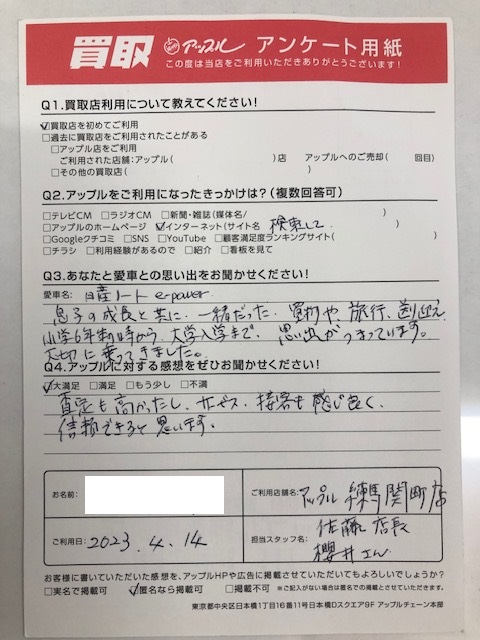 買取 アップル アンケート用紙
この度は当店をご利用いただきありがとうございます!
Q1.買取店利用について教えてください!
☑買取店を初めてご利用
□過去に買取店をご利用されたことがある
□アップル店をご利用
ご利用された店舗:アップル( )店 アップルへのご売却( 回目)
□その他の買取店( )
Q2.アップルをご利用になったきっかけは?(複数回答可)
□テレビCM □ラジオCM □新聞・雑誌(媒体名/ )
□アップルのホームページ ☑インターネット(サイト名 検索して )
□Googleクチコミ □SNS □YouTube □顧客満足度ランキングサイト( )
□チラシ □利用経験があるので □紹介 □看板を見て
Q3.あなたと愛車との思い出をお聞かせください!
愛車名: 日産ノート e-power
息子の成長と共に、一緒だった。買物や旅行、送迎え
小学6年制の時から、大学入学まで、思い出がつまっています。
大切に乗ってきました。
Q4.アップルに対する感想をぜひお聞かせください!
☑大満足 □満足 □もう少し □不満
査定も高かったし、サービス、接客も感じ良く、
信頼できると思います。
お名前:
ご利用店舗名: アップル 練馬関町店
ご利用日: 2023.4.14
担当スタッフ名: 佐藤店長
櫻井さん
お客様に書いていただいた感想を、アップルHPや広告に掲載させていただいてもよろしいでしょうか?
□実名で掲載可 ☑匿名なら掲載可 □掲載不可 ※ご記入がない場合は匿名での掲載とさせていただきます。
東京都中央区日本橋1丁目16番11号日本橋Dスクエア9F アップルチェーン本部